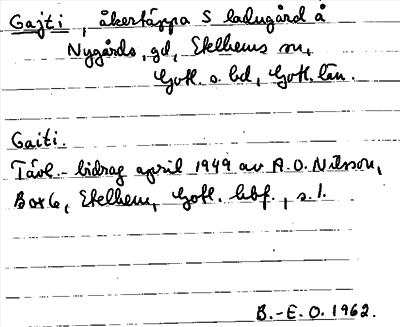 Gajti, åkertäppa S ladugård å
Nygårds, gd, Etelhems sn,
Gotl. s. hd, Gotl. län.
Gaiti.
Tävl.-bidrag april 1949 av A.O. Nilsson,
Box 6, Etelhem, Gotl. hbf., s. 1.
B.-E. O. 1962.